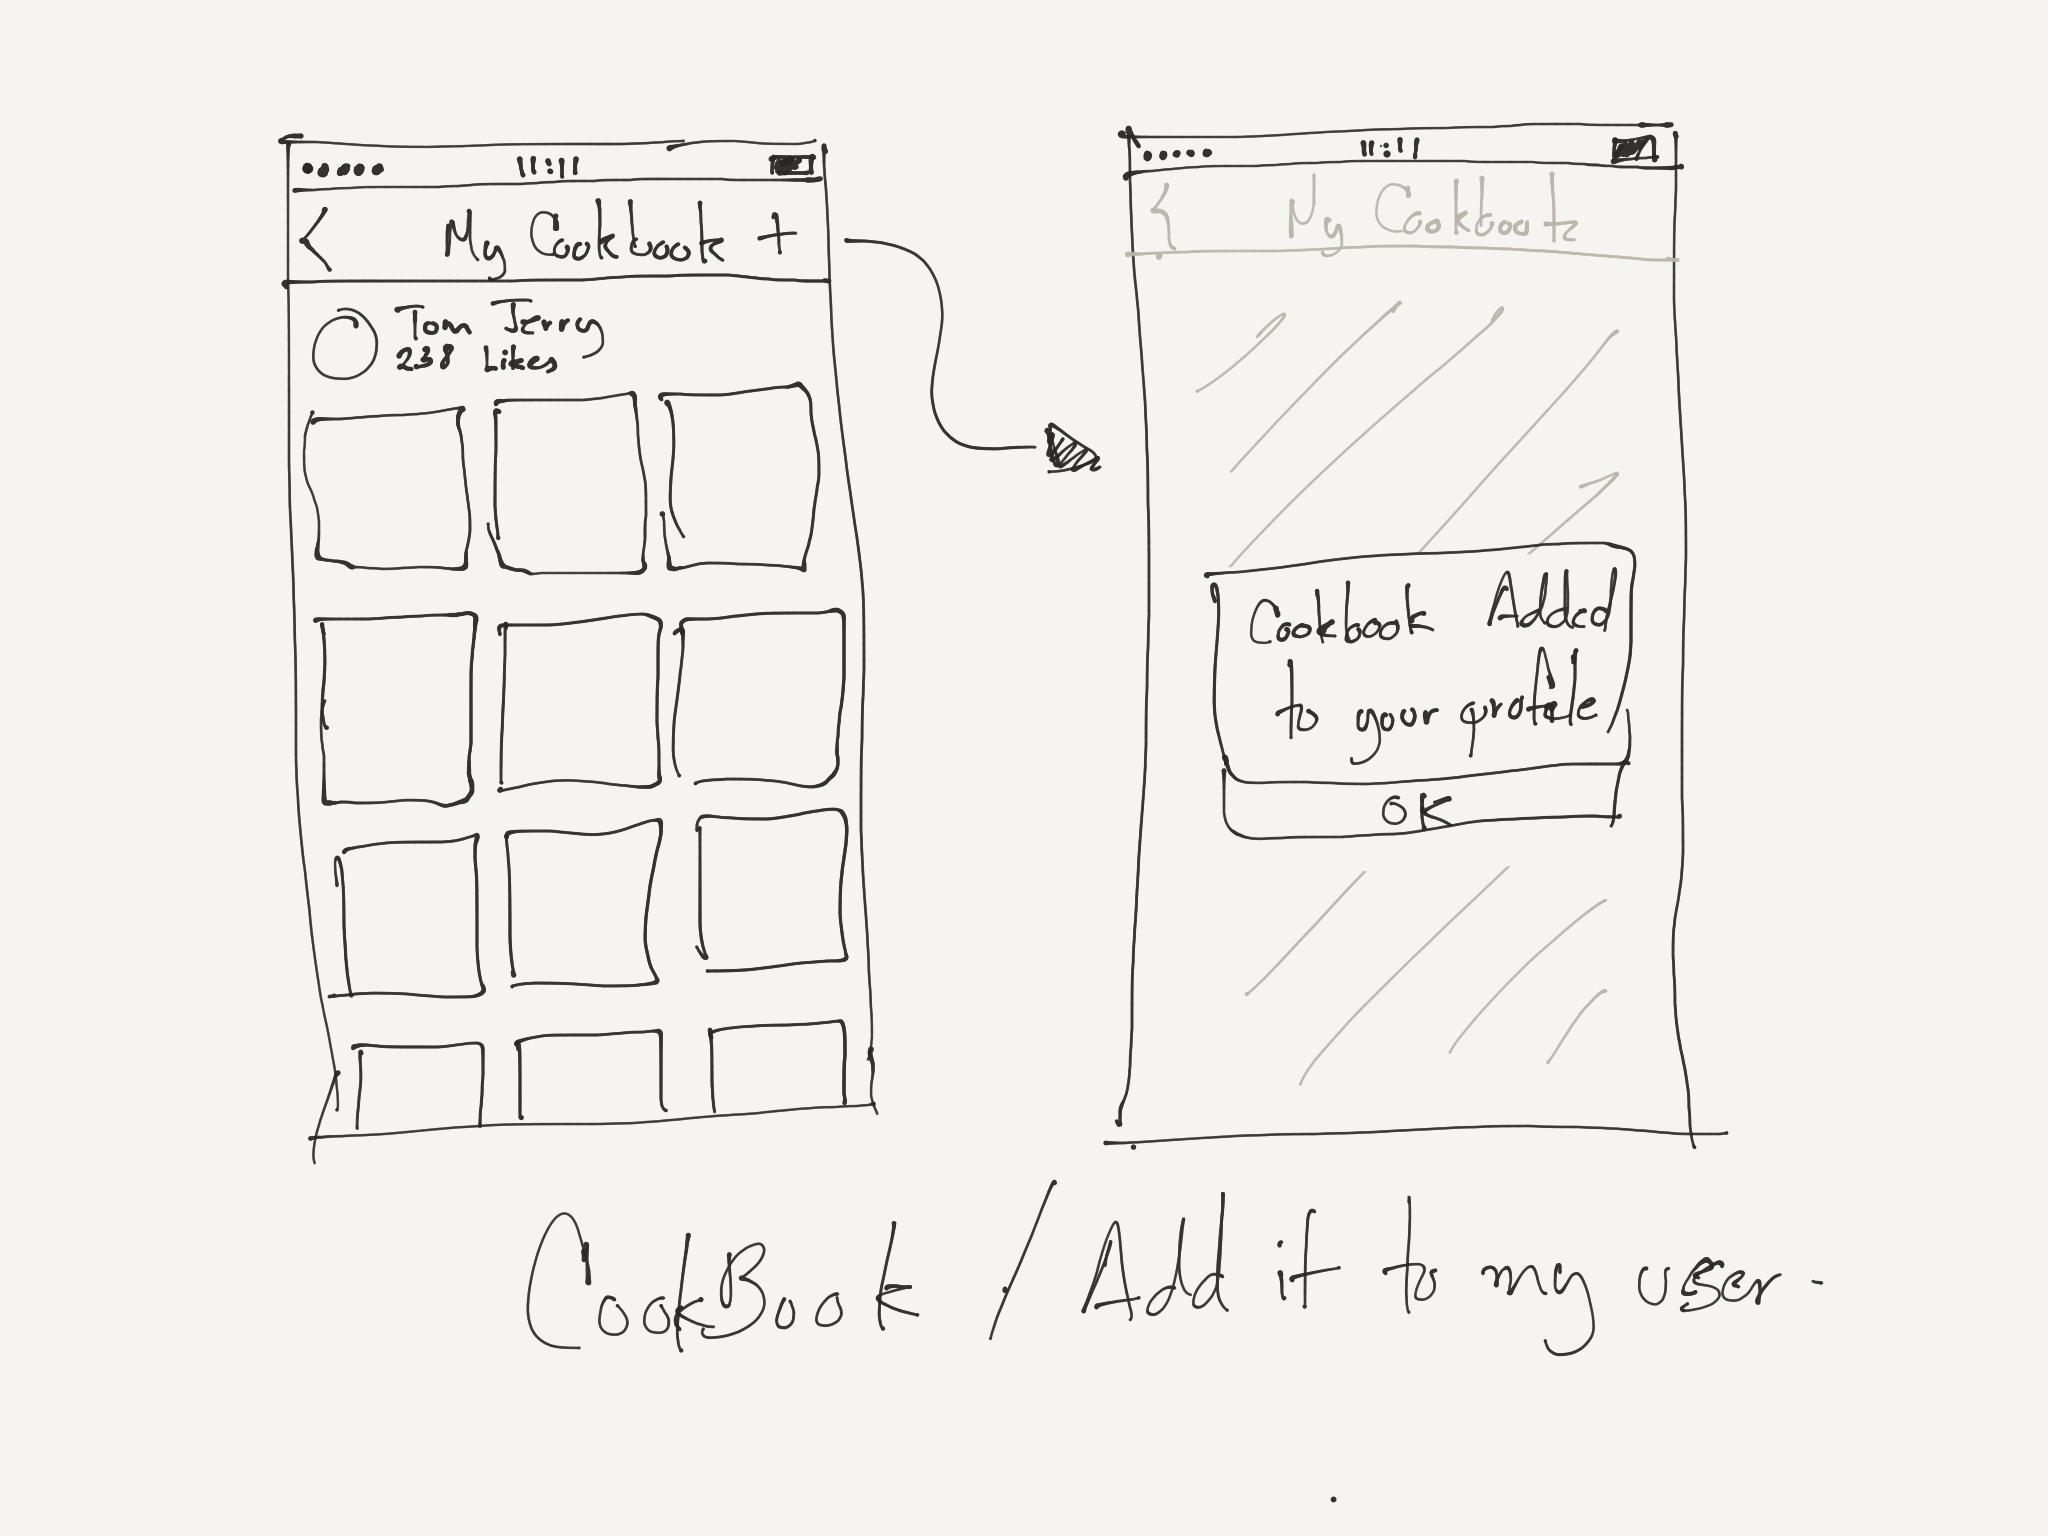 11:11
< My Cookbook +
Tom Jerry
238 Likes
11:11
My Cookbook
Cookbook Added
to your profile
OK
CookBook / Add it to my user -